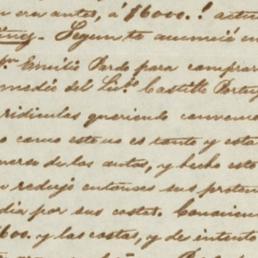 n era antes, á $6000.! actu
Segun te anuncié en
Emilio Pardo para comprar
medio del Lic.do Castillo Portug
ridiculas queriendo convence
caus este us es tanto y esta
de los autos, y hecho esto
redujo entonces sus preten
dia por sus costas. Convini
600. y las costas, y de intento